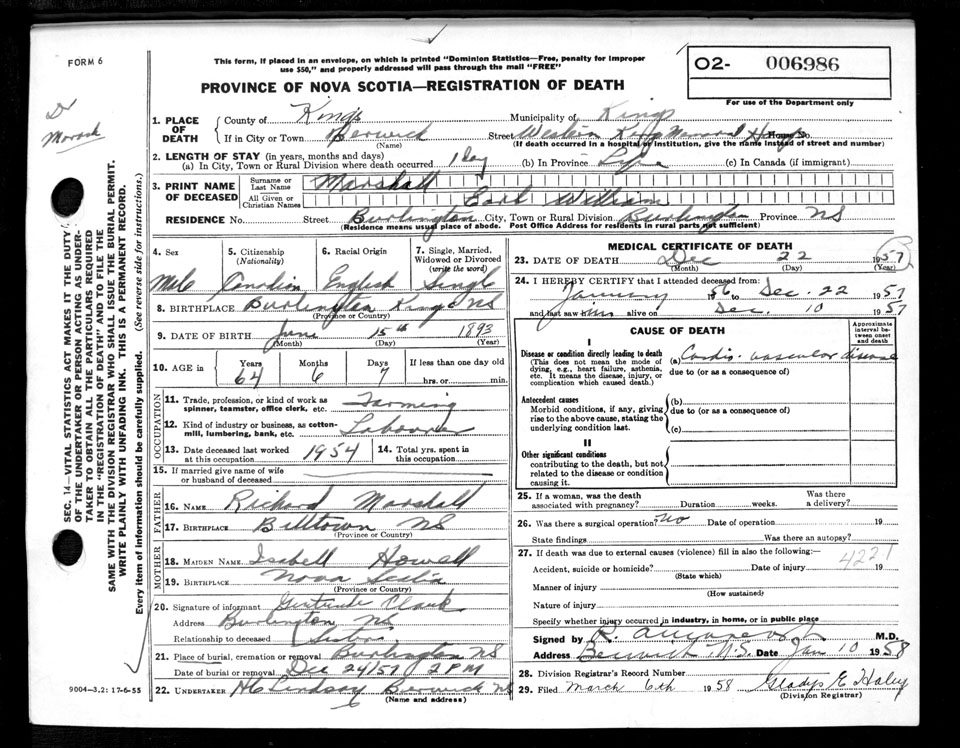 FORM 6
This form, if placed in an envelope, on which is printed "Dominion Statistics—Free, penalty for improper
use $50," and properly addressed will pass through the mail "FREE"
PROVINCE OF NOVA SCOTIA—REGISTRATION OF DEATH
O2- 006986
For use of the Department only
Dr
SEC. 14—VITAL STATISTICS ACT MAKES IT THE DUTY
OF THE UNDERTAKER OR PERSON ACTING AS UNDER-
TAKER TO OBTAIN ALL THE PARTICULARS REQUIRED
IN THE "REGISTRATION OF DEATH" AND TO FILE THE
SAME WITH THE DIVISION REGISTRAR WHO SHALL ISSUE THE BURIAL PERMIT.
WRITE PLAINLY WITH UNFADING INK. THIS IS A PERMANENT RECORD.
Every item of information should be carefully supplied. (See reverse side for instructions.)
1. PLACE OF DEATH
County of Kings Municipality of Kings
If in City or Town Berwick Street Western Kings Memorial
(Name) (If death occurred in a hospital or institution, give the name instead of street and number)
2. LENGTH OF STAY (in years, months and days)
(a) In City, Town or Rural Division where death occurred 1 day (b) In Province Life (c) In Canada (if immigrant)
3. PRINT NAME OF DECEASED
Surname or Last Name Marshall
All Given or Christian Names Earl William
RESIDENCE No. Street Burlington City, Town or Rural Division Burlington Province NS
(Residence means usual place of abode. Post Office Address for residents in rural parts not sufficient)
4. Sex 5. Citizenship (Nationality) 6. Racial Origin 7. Single, Married, Widowed or Divorced (write the word)
Male Canadian English Single
8. BIRTHPLACE Burlington Kings NS
(Province or Country)
9. DATE OF BIRTH June 15th 1893
(Month) (Day) (Year)
10. AGE in Years Months Days If less than one day old
64 6 7 hrs. or min.
OCCUPATION
11. Trade, profession, or kind of work as
spinner, teamster, office clerk, etc. Farming
12. Kind of industry or business, as cotton-
mill, lumbering, bank, etc. Labourer
13. Date deceased last worked at this occupation 1954 14. Total yrs. spent in this occupation
15. If married give name of wife
or husband of deceased
FATHER
16. NAME Richard Marshall
17. BIRTHPLACE Billtown NS
(Province or Country)
MOTHER
18. MAIDEN NAME Isabell Howell
19. BIRTHPLACE Nova Scotia
(Province or Country)
20. Signature of informant Gertrude Clark
Address Burlington NS
Relationship to deceased Sister
21. Place of burial, cremation or removal Burlington NS
Date of burial or removal Dec 24/57 2 PM
22. UNDERTAKER HC Lindsay Berwick NS
(Name and address)
9004—3.2: 17-6-55
MEDICAL CERTIFICATE OF DEATH
23. DATE OF DEATH Dec 22 1957
(Month) (Day) (Year)
24. I HEREBY CERTIFY that I attended deceased from:
January 1956 to Dec. 22 1957
and last saw him alive on Dec. 10 1957
CAUSE OF DEATH
Approximate interval between onset and death
I
Disease or condition directly leading to death
(This does not mean the mode of
dying, e.g., heart failure, asthenia,
etc. It means the disease, injury, or
complication which caused death.)
(a) Cardio. vascular disease
due to (or as a consequence of)
Antecedent causes
Morbid conditions, if any, giving
rise to the above cause, stating the
underlying condition last.
(b)
due to (or as a consequence of)
(c)
II
Other significant conditions
contributing to the death, but not
related to the disease or condition
causing it.
25. If a woman, was the death
associated with pregnancy? Duration weeks. Was there a delivery?
26. Was there a surgical operation? No Date of operation 19
State findings Was there an autopsy?
27. If death was due to external causes (violence) fill in also the following:—
422.1
Accident, suicide or homicide? Date of injury 19
(State which)
Manner of injury
(How sustained)
Nature of injury
Specify whether injury occurred in industry, in home, or in public place
Signed by M.D.
Address Berwick N.S. Date Jan 10 1958
28. Division Registrar's Record Number
29. Filed March 6th 1958 Gladys E Haley
(Division Registrar)